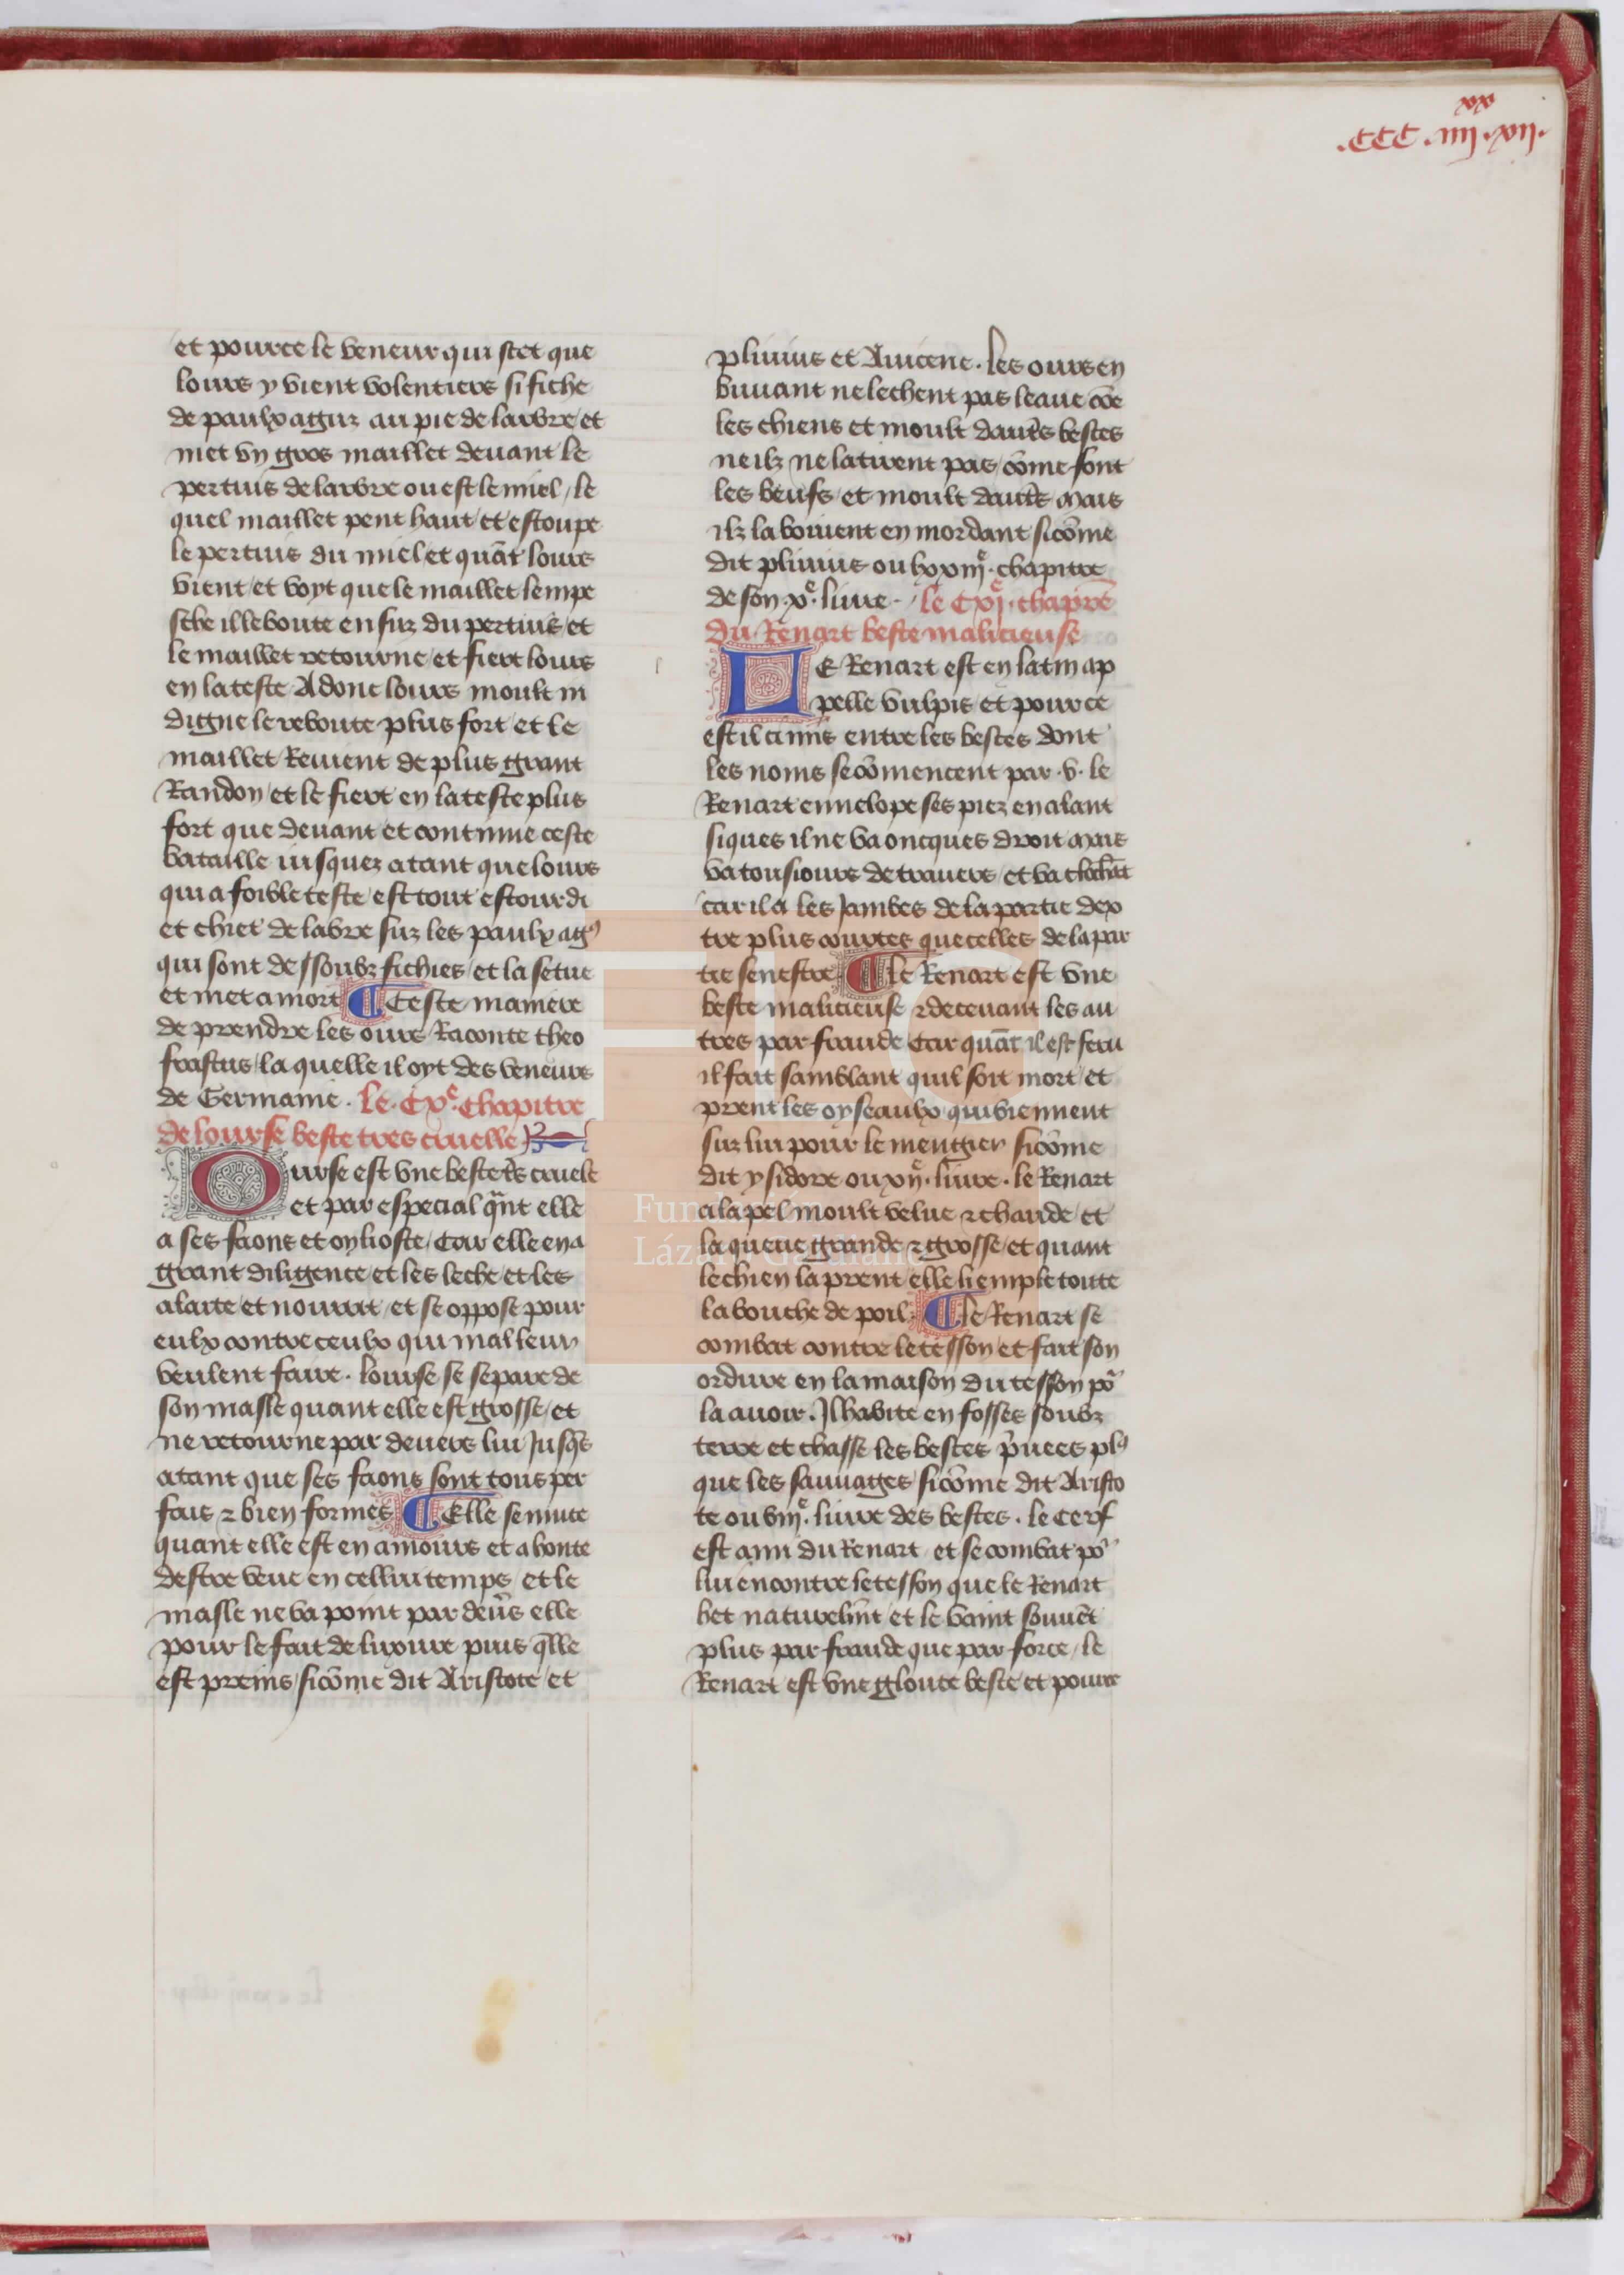 xx
.CCC.iiij.xij.
et pource le veneur qui scet que
lours y vient volentiers si fiche
de paulx aguz au pie de larbre et
met vn gros maillet deuant le
pertuis de larbre ou est le miel / le
quel maillet pent hault et estoupe
le pertuis du miel et quāt lours
vient et voyt que le maillet lempe
sche il le boute en suz du pertuis et
le maillet retourne et fiert lours
en la teste Adonc lours moult in
digne le reboute plus fort et le
maillet Reuient de plus grant
Randon et le fiert en la teste plus
fort que deuant et continue ceste
bataille iusquez atant que lours
qui a foible teste est tout estourdi
et chiet de labre suz les paulx agꝰ
qui sont dessoubz fichies et la se tue
et met a mort ¶ Ceste maniere
de prendre les ours Raconte theo
frastus la quelle il oyt des veneurs
de Germanie. le .Cxe. Chapitre
de lourse beste tres cruelle
Ourse est vne beste tēs cruele
et par especial qn̄t elle
a ses faons et on li oste / Car elle en a
grant diligence et les leche et les
alaite et nourrit / et se oppose pour
eulx contre ceulx qui mal leur
veulent faire. lourse se separe de
son masle quant elle est grosse / et
ne retourne par deuers lui Jusqs̄
atant que ses faons sont tous per
fais ⁊ bien formes ¶ Elle se mute
quant elle est en amours et a honte
destre veue en cellui temps / et le
masle ne va point par deūs elle
pour le fait de luxure puis qlle
est preins / sicōme dit Aristote / et
plinius et Auicene. les ours en
buuant ne lechent pas leaue cōe
les chiens et moult daut̄s bestes
ne ilz ne latirent pas cōme font
les beufs / et moult daut̄s Mais
ilz la boiuent en mordant sicōme
dit plinius ou lxxiije. chapitre
de son .xe. liure. le Cxje. chapr̄e
du Renart beste malicieuse
LE Renart est en latin ap
pelle vulpis et pource
est il ci mis entre les bestes dont
les noms se cōmencent par .v. le
Renart enuelope ses piez en alant
si ques il ne va oncques droit Mais
va tousiours de trauers et va clochāt
car il a les Jambes de la partie dex
tre plus courtes que celles de la par
tie senestre ¶ le Renart est vne
beste malicieuse ⁊ deceuant les au
tres par fraude Car quāt il est feru
il fait samblant quil soit mort et
prent les oyseaulx qui viennent
suz lui pour le mengier sicōme
dit ysidore ou xije. liure. le Renart
a la pel moult velue ⁊ chaude / et
la queue grande ⁊ grosse / et quant
le chien la prent / elle li emple toute
la bouche de poil. ¶ le Renart se
combat contre le tesson et fait son
ordure en la maison du tesson po᷑
la auoir. Jl habite en fosses soubz
terre et chasse les bestes p̄uees plꝰ
que les sauuages sicōme dit Aristo
te ou viije. liure des bestes. le cerf
est ami du Renart et se combat po᷑
lui encontre le tesson que le Renart
het naturelm̄t et le vaint souuēt
plus par fraude que par force / le
Renart est vne gloute beste et pource
Fundación
Lázaro Galdiano